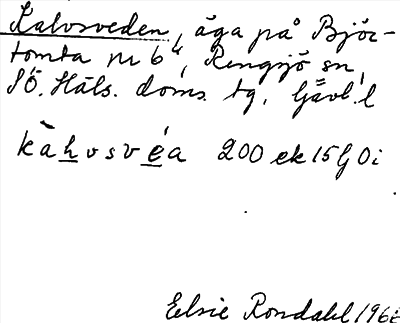 Kalvsveden, äga på Björ-
tomta nr 6⁴, Rengsjö sn,
SÖ. Häls. doms. tg, Gävl. l
kàhvsvéa 200 ek 15G0i
Elsie Rondahl 196